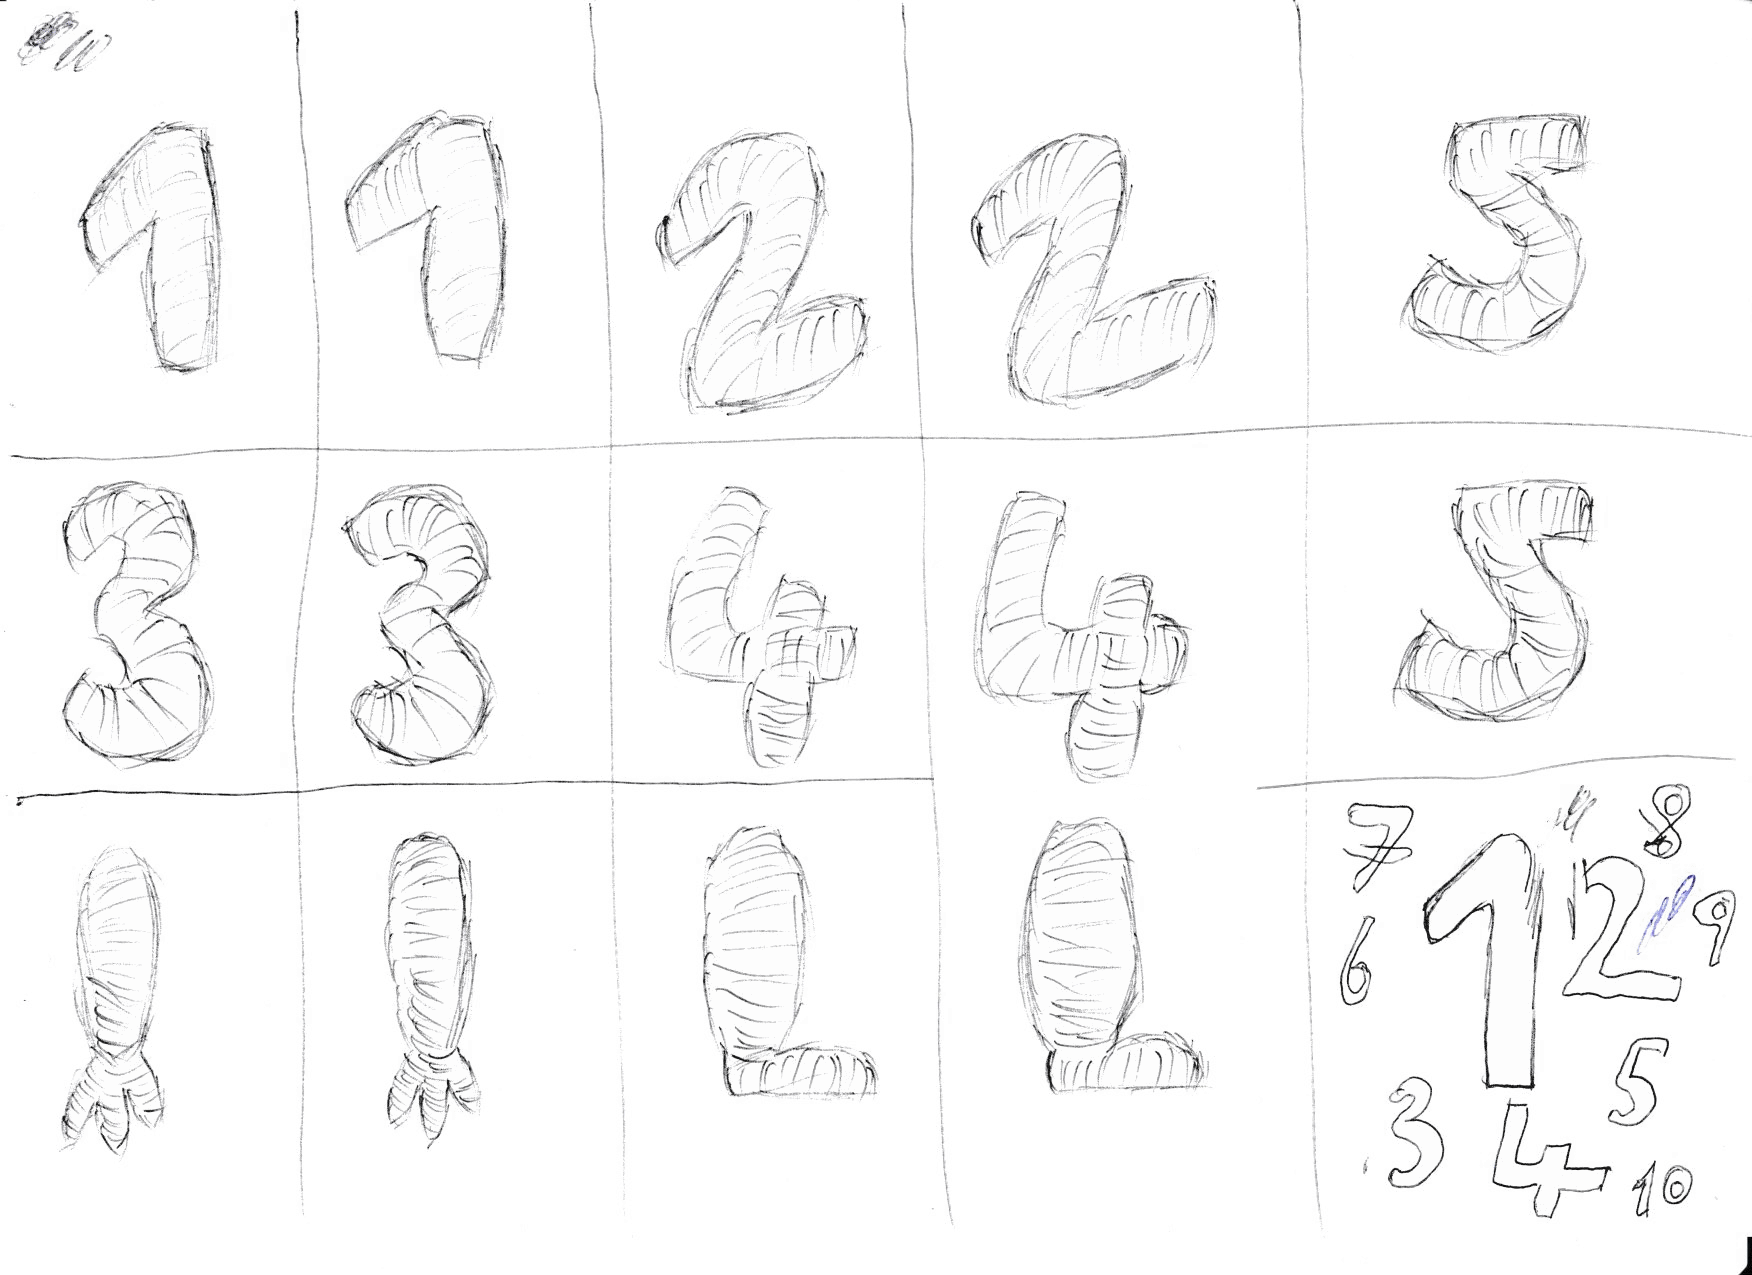 1 1 2 2 5
3 3 4 4 5
7 8
1 2 9
6
5
3 4 10